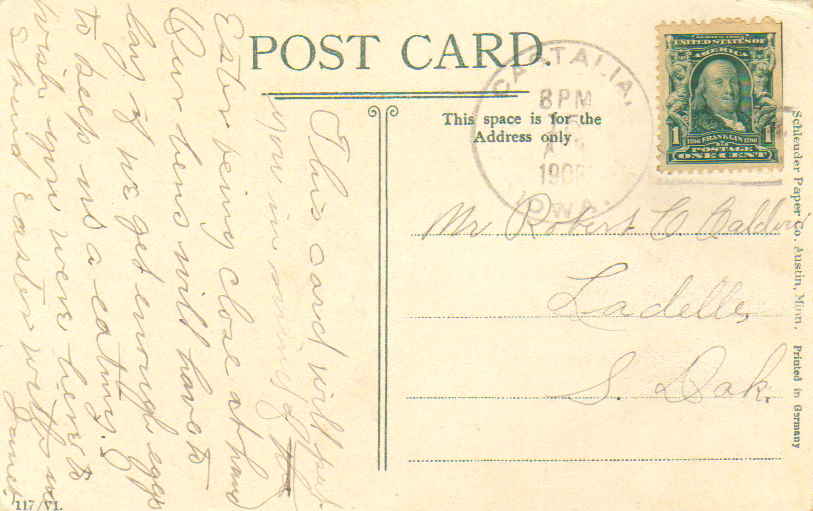 POST CARD.
This space is for the
Address only
CASTALIA,
8 PM
IOWA.
UNITED STATES OF
AMERICA
1 FRANKLIN 1
POSTAGE
ONE CENT
Mr Robert C. Baldwin
Ladelle,
S. Dak.
This card will put
you in mind of the
Ester being close at hand
Our hens will have to
lay if we get enough eggs
to keep us a-eating. I
wish you were here to
spend easter with us
James.
117/VI.
Schleuder Paper Co. Austin, Minn. Printed in Germany